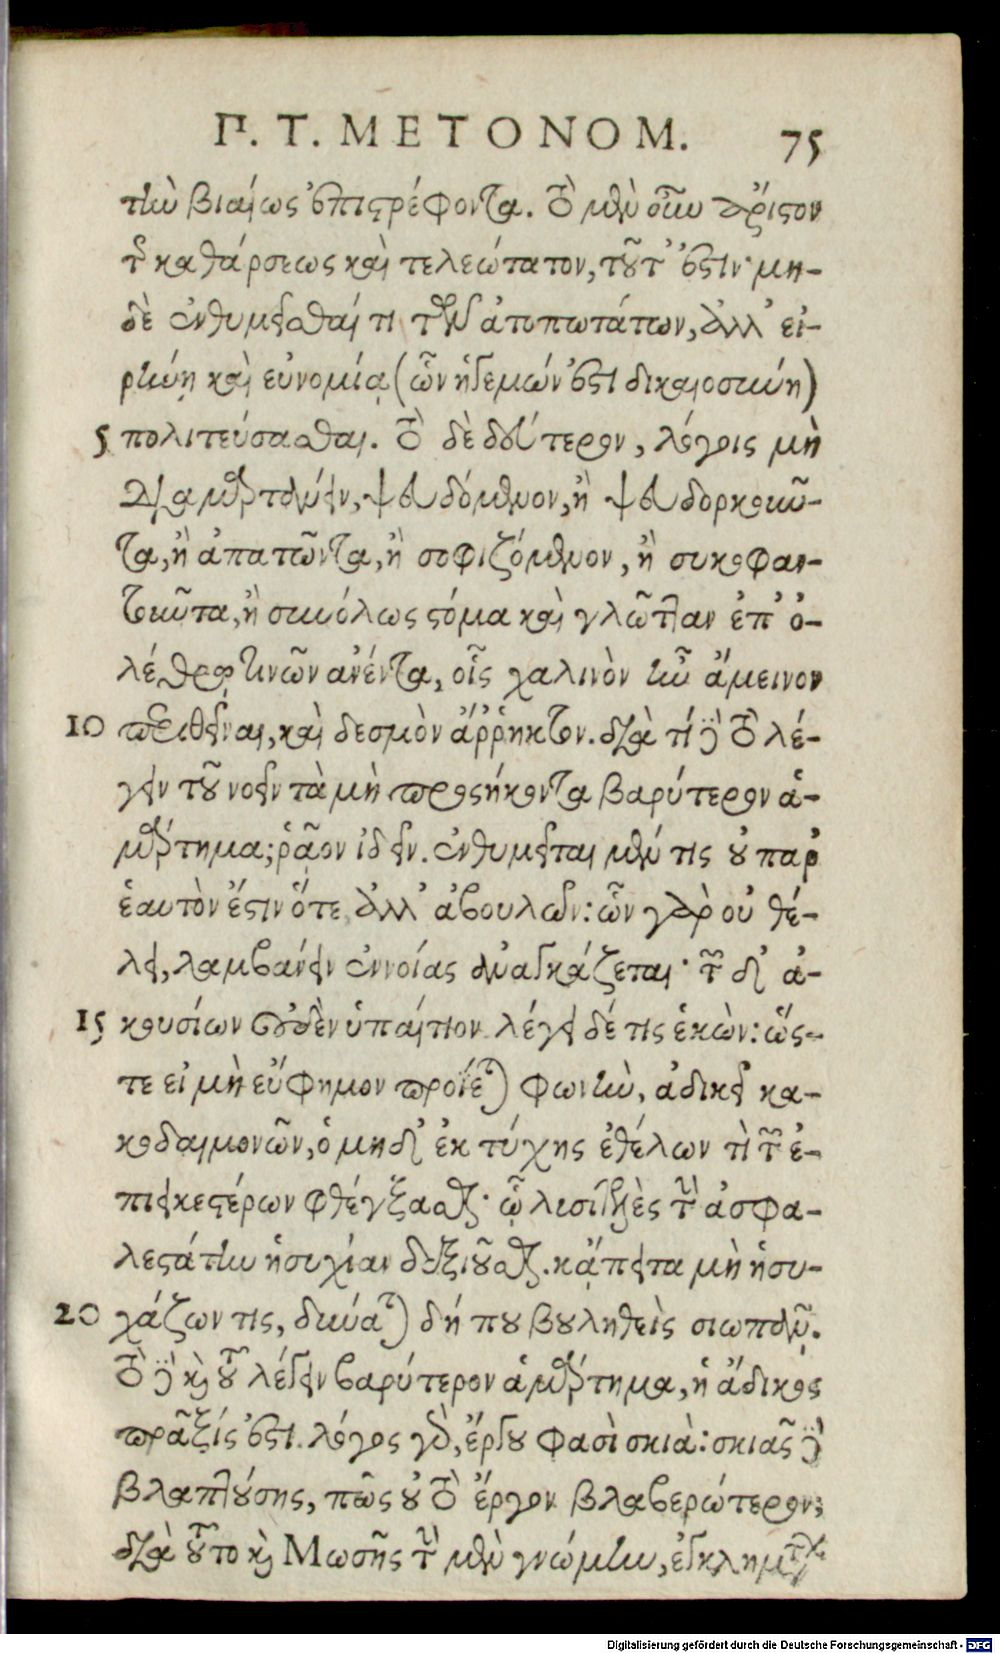 Π. Τ. ΜΕΤΟΝΟΜ. 75
τὴν βιαίως ἐπιστρέφοντα. τὸ μὲν οὖν ἄριστον
τ͂ καθάρσεως καὶ τελεώτατον, τοῦτ' ἔστιν· μη-
δὲ ἐνθυμεῖσθαί τι τῶν ἀτοπωτάτων, ἀλλ' εἰ-
ρήνῃ καὶ εὐνομίᾳ (ὧν ἡγεμών ἐστι δικαιοσύνη)
5 πολιτεύσασθαι. τὸ δὲ δεύτερον, λόγοις μὴ
διαμαρτάνειν, ψευδόμενον, ἢ ψευδορκοῦν-
τα, ἢ ἀπατῶντα, ἢ σοφιζόμενον, ἢ συκοφαν-
τοῦντα, ἢ συνόλως στόμα καὶ γλῶτταν ἐπ' ὀ-
λέθρῳ τινῶν ἀνέντα, οἷς χαλινὸν ἦν ἄμεινον
10 περιθεῖναι, καὶ δεσμὸν ἄῤῥηκτον. διὰ τί δὲ τὸ λέ-
γειν τοῦ νοεῖν τὰ μὴ προσήκοντα βαρύτερον ἁ-
μάρτημα; ῥᾷον ἰδεῖν. ἐνθυμεῖται μέν τις οὐ παρ'
ἑαυτὸν ἔστιν ὅτε, ἀλλ' ἀβουλῶν: ὧν γὰρ οὐ θέ-
λει, λαμβάνειν ἐννοίας ἀναγκάζεται· τῶν δ' ἀ-
15 κουσίων οὐδὲν ὑπαίτιον. λέγει δέ τις ἑκών: ὥς-
τε εἰ μὴ εὔφημον προΐεται φωνὴν, ἀδικεῖ κα-
κοδαιμονῶν, ὁ μηδ' ἐκ τύχης ἐθέλων τὶ τῶν ἐ-
πιεικεστέρων φθέγξασθαι· ᾧ λυσιτελὲς τὴν ἀσφα-
λεστάτην ἡσυχίαν δεξιοῦσθαι. κἄπειτα μὴ ἡσυ-
20 χάζων τις, δύναται δή που βουληθεὶς σιωπᾷν.
τὸ δὲ καὶ τοῦ λέγειν βαρύτερον ἁμάρτημα, ἡ ἄδικος
πρᾶξίς ἐστι. λόγος γὰρ, ἔργου φασὶ σκιὰ: σκιᾶς δὲ
βλαπτούσης, πῶς οὐ τὸ ἔργον βλαβερώτερον;
διὰ τοῦτο καὶ Μωσῆς τὴν μὲν γνώμην, ἐγκλημάτων
Digitalisierung gefördert durch die Deutsche Forschungsgemeinschaft - DFG